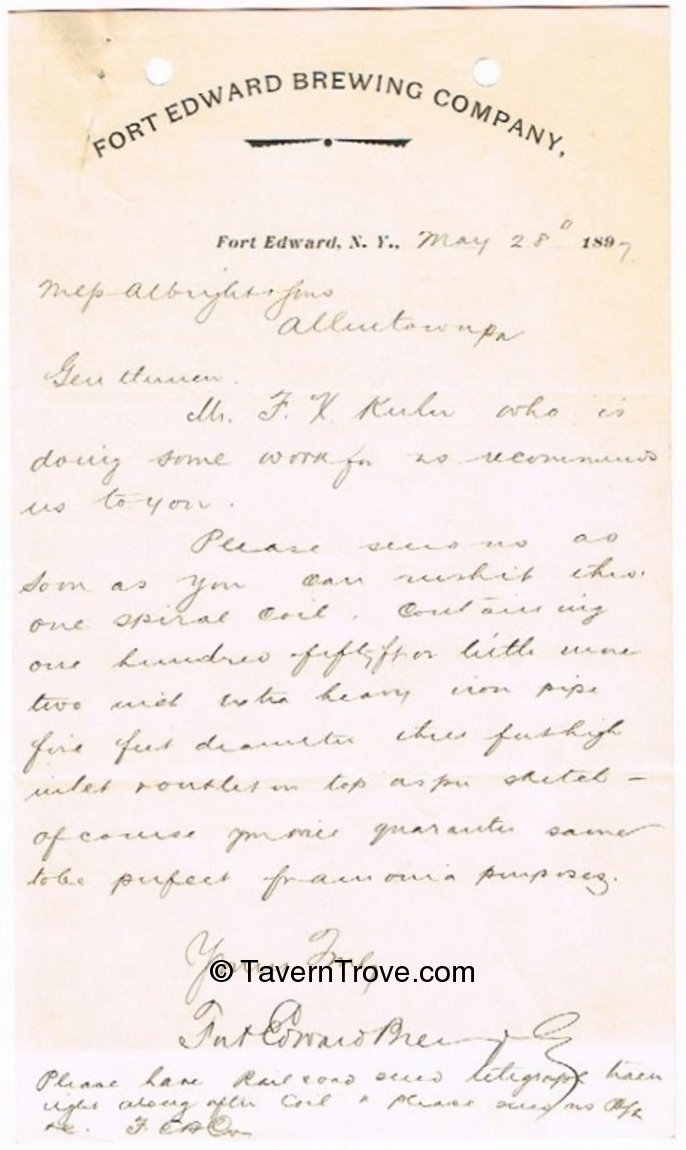 FORT EDWARD BREWING COMPANY,
Fort Edward, N. Y., May 28" 1897
Albright & Sons
Allentown Pa
Gentlemen.
Mr. F. X. Kuhn who is
doing some work for us recommends
us to you.
Please send us as
soon as you can rush it thro.
one spiral coil. Containing
one hundred fifty ft or little more
two inch extra heavy iron pipe
five feet diameter three feet high
inlet & outlet on top as per sketch —
of course you will guarantee same
to be perfect for amonia purposes.
Yours Truly
© TavernTrove.com
Fort Edward Brewing Co
Please have Railroad send telegraph tracer
right along after Coil & Please send us
F. E. B. Co